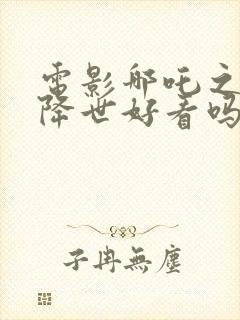 電影哪吒之
降世好看吗
子冉無塵